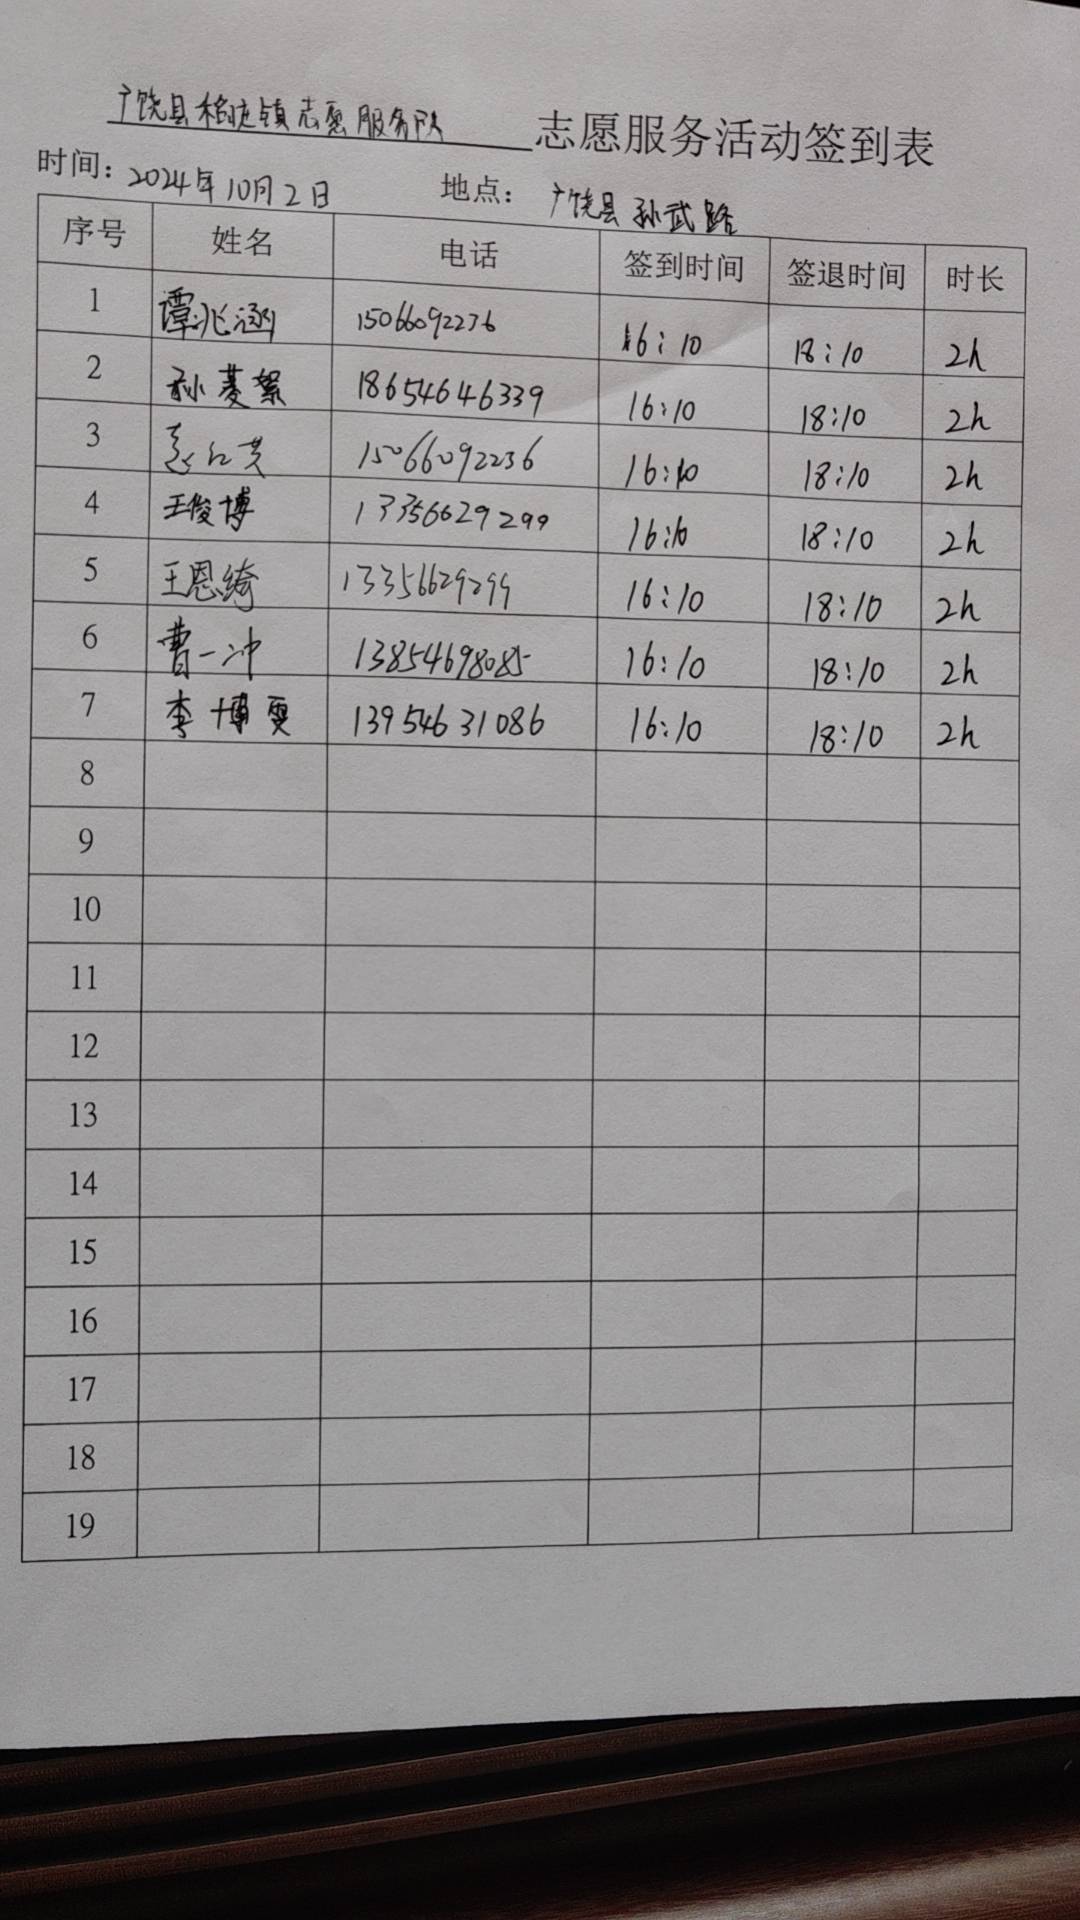 广饶县稻庄镇志愿服务队 志愿服务活动签到表
时间：2024年10月2日 地点：广饶县孙武路
序号 姓名 电话 签到时间 签退时间 时长
1 谭兆涵 15066092236 16:10 18:10 2h
2 孙菱絮 18654646339 16:10 18:10 2h
3 15066092236 16:10 18:10 2h
4 王俊博 13356629299 16:10 18:10 2h
5 王恩绮 13356629299 16:10 18:10 2h
6 曹一冲 13854698085 16:10 18:10 2h
7 李博雯 13954631086 16:10 18:10 2h
8
9
10
11
12
13
14
15
16
17
18
19